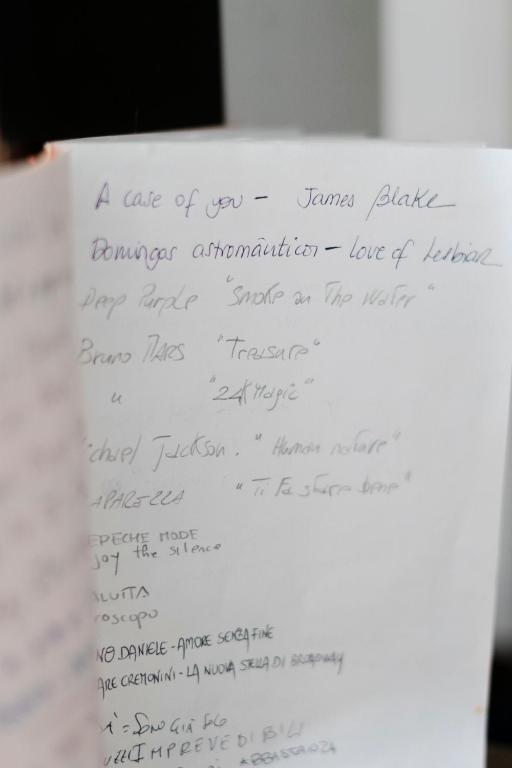 A case of you - James Blake
Domingos astromânticos - Love of Lesbian
Deep Purple "Smoke on The Water"
Bruno MARS "Treasure"
" "24K Magic"
ichael Jackson. "Human nature"
APAREZZA "Ti Fa stare bene"
EPECHE MODE
joy the silence
ALUITA
roscopo
NO DANIELE - AMORE SENZA FINE
ARE CREMONINI - LA NUOVA STELLA DI BROADWAY
= SONO GIÀ
IMPREVEDIBILI
ABBASTANZA